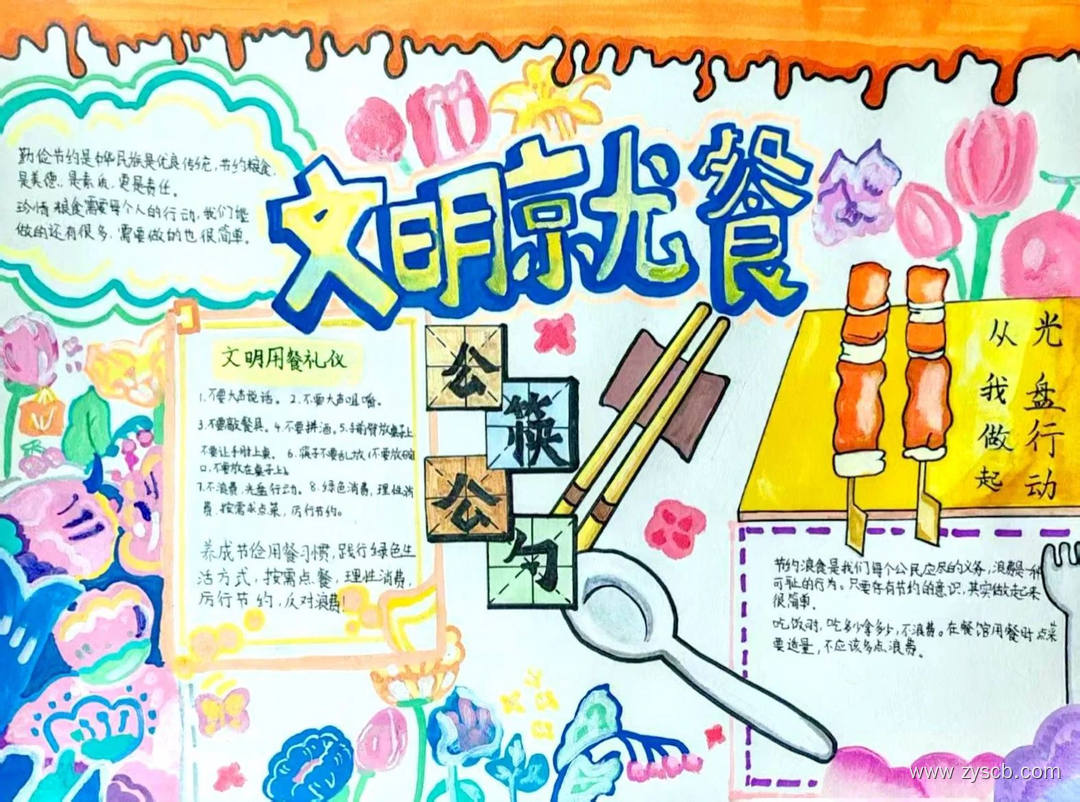 勤俭节约是中华民族是优良传统,节约粮食,
是美德,是素质,更是责任。
珍惜粮食需要每个人的行动,我们能
做的还有很多,需要做的也很简单。
文明就餐
文明用餐礼仪
1.不要大声说话。2.不要大声咀嚼。
3.不要敲餐具。4.不要拼酒。5.手臂放桌子上
不要让手肘上桌。6.筷子不要乱放(不要放碗
口,不要放在桌子上)
7.不浪费,光盘行动。8.绿色消费,理性消
费,按需求点菜,厉行节约。
养成节俭用餐习惯,践行绿色生
活方式,按需点餐,理性消费,
厉行节约,反对浪费!
公
筷
公
勺
光盘行动
从我做起
节约浪食是我们每个公民应尽的义务,浪费是一种
可耻的行为,只要存有节约的意识,其实做起来
很简单。
吃饭时,吃多少拿多少,不浪费。在餐馆用餐时点菜
要适量,不应该多点浪费。
www.zyscb.com